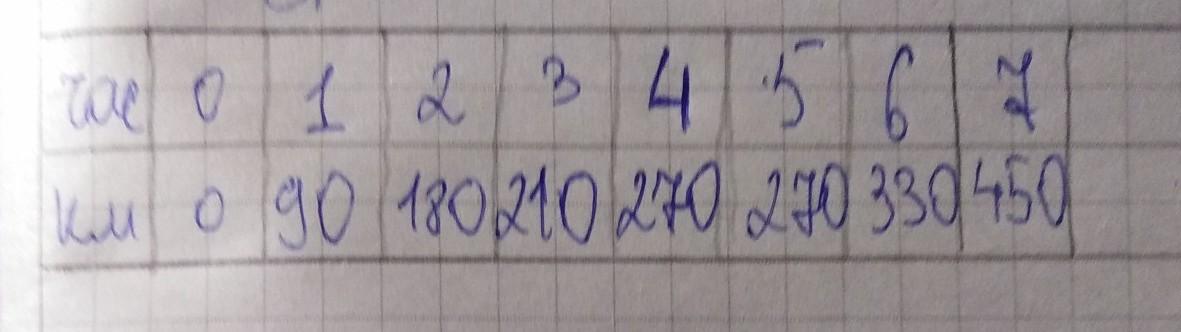 час 0 1 2 3 4 5 6 7
км 0 90 180 210 270 270 330 450